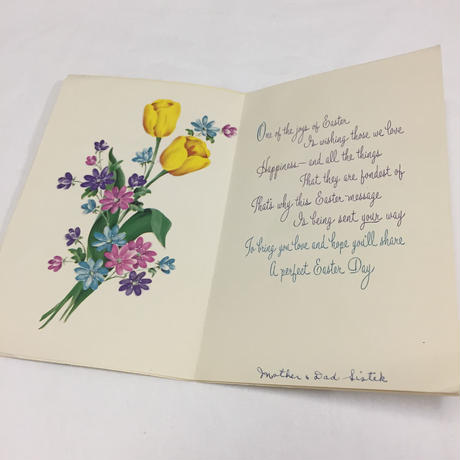 One of the joys of Easter
Is wishing those we love
Happiness—and all the things
That they are fondest of
That's why this Easter message
Is being sent your way
To bring you love and hope you'll share
A perfect Easter Day
Mother & Dad Sistek